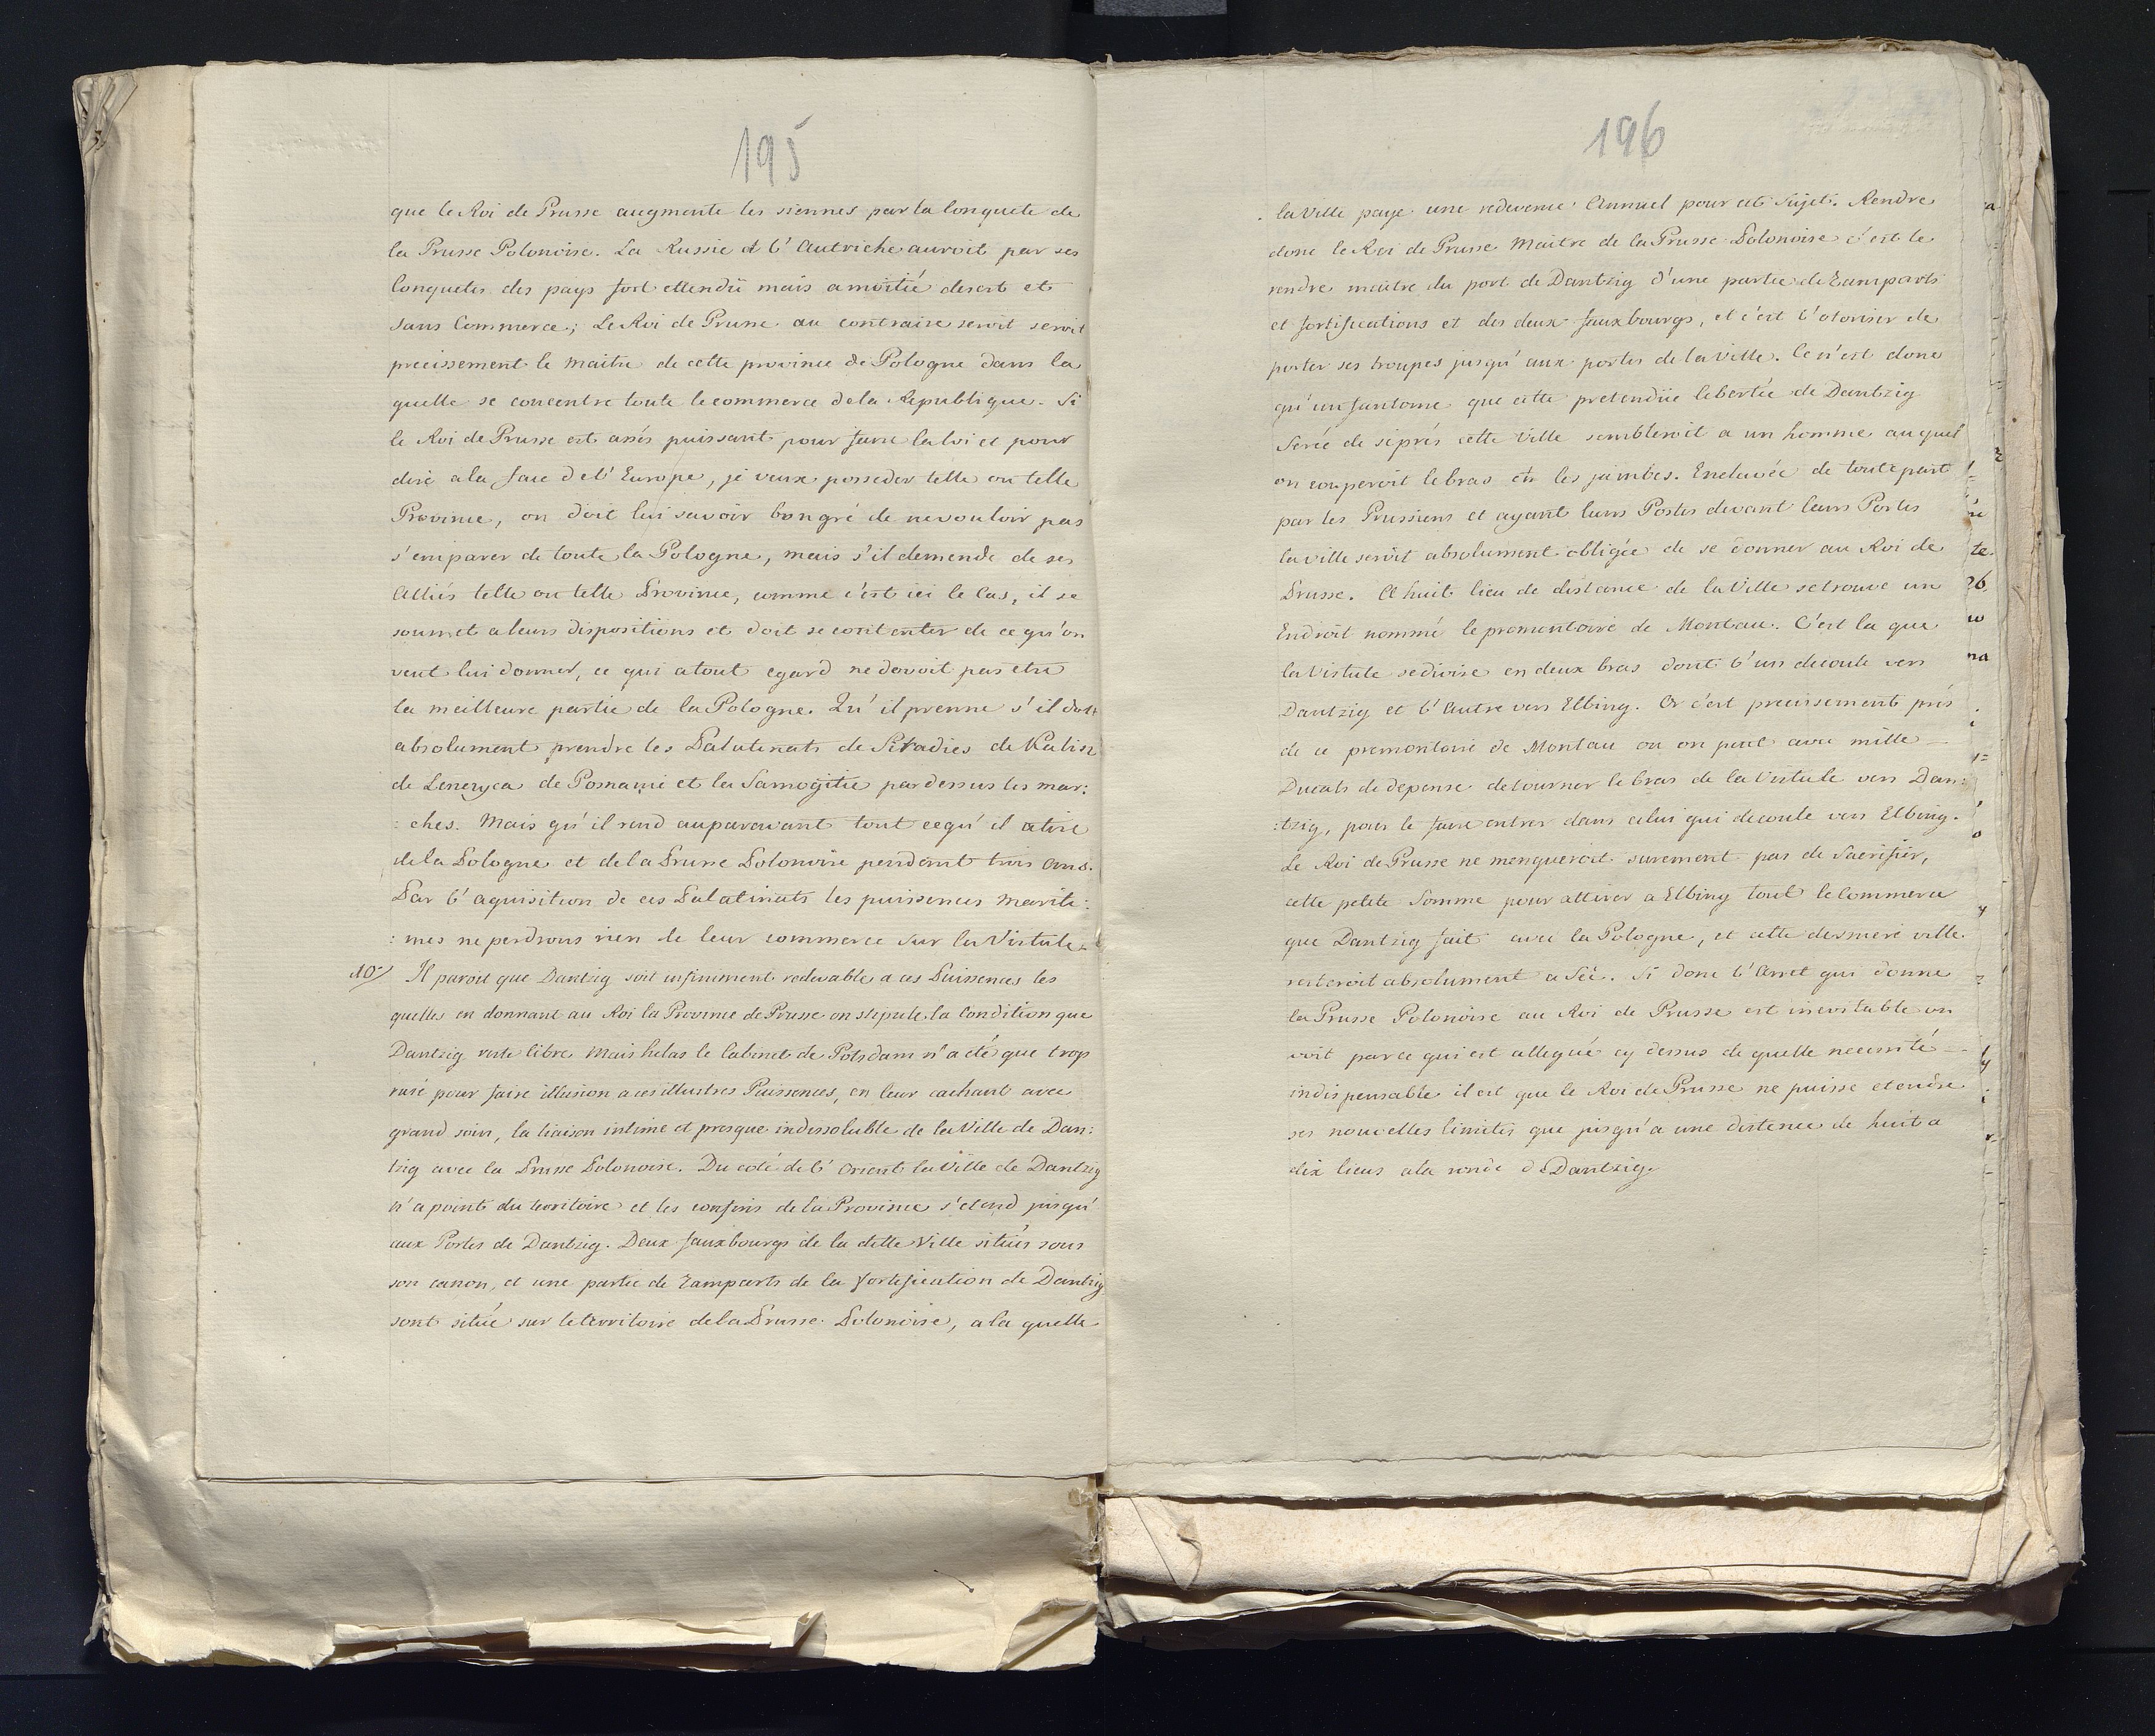 195
que le Roi de Prusse augmente les siennes par la Conquete de
la Prusse Polonoise. La Russie et l'Autriche auroit par ses
Conquetes des pays fort ettendü mais a moitié desert et
sans Commerce; Le Roi de Prusse au contraire seroit seroit
precissement le maitre de cette province de Pologne dans la
quelle se concentre toute le commerce de la Republique. Si
le Roi de Prusse est assés puissant pour faire la loi et pour
dire a la face de l'Europe, je veux posseder telle ou telle
Province, on doit lui savoir bongré de ne vouloir pas
s'emparer de toute la Pologne, mais s'il demende de ses
Alliés telle ou telle Province, comme c'est ici le Cas, il se
soumet a leurs dispositions et doit se contenter de ce qu'on
veut lui donner, ce qui a tout egard ne devoit pas etre
la meilleure partie de la Pologne. Qu'il prenne s'il doit
absolument prendre les Palatinats de Siradies de Kalisz
de Lenczyca de Posnanie et la Samogitie par dessus les mar:
:ches. Mais qu'il rend auparavant tout ce qu'il a tiré
de la Pologne et de la Prusse Polonoise pendant trois ans.
Par l'aquisition de ces Palatinats les puissences Mariti:
:mes ne perdrons rien de leur commerce sur la Vistule.
10) Il paroit que Dantzig soit infiniment redevable a ces Puissences les
quelles en donnant au Roi la Province de Prusse on stipule la Condition que
Dantzig reste libre. Mais helas le Cabinet de Potsdam n'a été que trop
rusé pour faire illusion a ces illustres Puissences, en leur cachant avec
grand soin, la liaison intime et presque indissoluble de la Ville de Dan:
tzig avec la Prusse Polonoise. Du coté de l'Orient la Ville de Dantzig
n'a point du territoire et les confins de la Province s'etend jusqu'
aux Portes de Dantzig. Deux fauxbourgs de la ditte Ville situés sous
son canon, et une partie de Ramparts de la fortification de Dantzig
sont située sur le territoire de la Prusse Polonoise, a la quelle
196
la Ville paye une redevence Annuel pour cet Sujet. Rendre
donc le Roi de Prusse Maitre de la Prusse Polonoise c'est le
rendre maitre du port de Dantzig d'une partie de Ramparts
et fortifications et des deux fauxbourgs, et c'est l'otoriser de
porter ses troupes jusqu'aux portes de la Ville. Ce n'est donc
qu'un fantome que cette pretendüe libertée de Dantzig
Serée de si prés cette Ville sembleroit a un homme auquel
on couperoit le bras et les jambes. Enclavée de toute part
par les Prussiens et ayant leurs Postes devant leurs Portes
la ville seroit absolument obligée de se donner au Roi de
Prusse. A huit lieu de distance de la Ville se trouve un
Endroit nommé le promentoire de Montau. C'est la que
la Vistule se divise en deux bras dont l'un decoule vers
Dantzig et l'Autre vers Elbing. Or c'est precisement prés
de ce promontoire de Montau ou on peut avec mille
Ducats de depense detourner le bras de la Vistule vers Dan:
:tzig, pour le faire entrer dans celui qui decoule vers Elbing.
Le Roi de Prusse ne menqueroit surement pas de Sacrifier,
cette petite Somme pour attirer a Elbing tout le Commerce
que Dantzig fait avec la Pologne, et cette derniere ville
resteroit absolument a Séc. Si donc l'Arret qui donne
la Prusse Polonoise au Roi de Prusse est inevitable on
voit par ce qui est allegué cy dessus de quelle necessité
indispensable il est que le Roi de Prusse ne puisse etendre
ses nouvelles limites que jusqu'a une distence de huit a
dix lieus a la ronde de Dantzig.